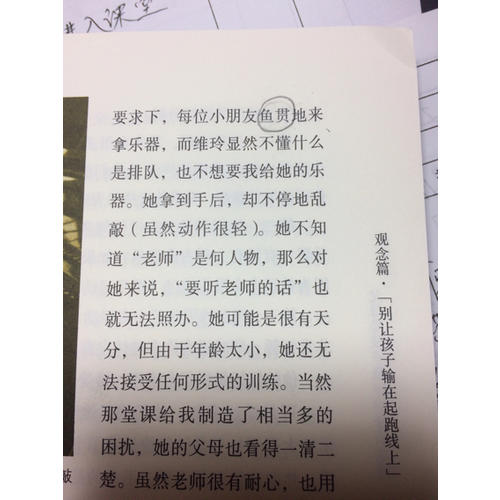 进入课堂
要求下，每位小朋友鱼贯地来
拿乐器，而维玲显然不懂什么
是排队，也不想要我给她的乐
器。她拿到手后，却不停地乱
敲（虽然动作很轻）。她不知
道“老师”是何人物，那么对
她来说，“要听老师的话”也
就无法照办。她可能是很有天
分，但由于年龄太小，她还无
法接受任何形式的训练。当然
那堂课给我制造了相当多的
困扰，她的父母也看得一清二
楚。虽然老师很有耐心，也用
观念篇·「别让孩子输在起跑线上」
敲